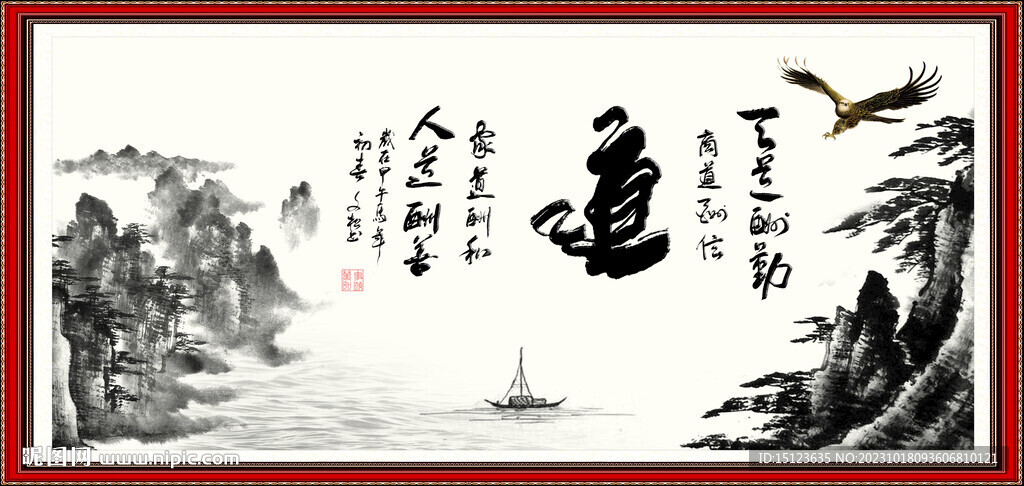 天道酬勤
商道酬信
道
家道酬和
人道酬善
歲在甲午馬年
初春
昵图网 www.nipic.com
ID:15123635 NO:20231018093606810121